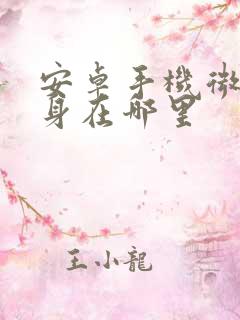 安卓手機微
身在哪里
王小龍